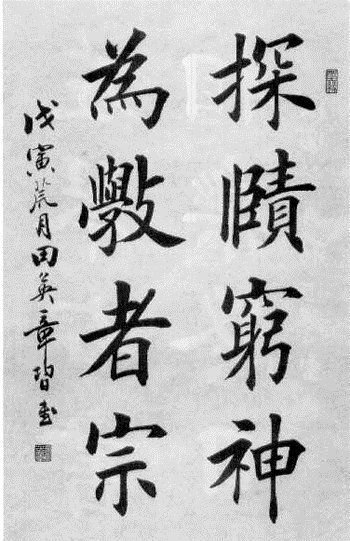 探賾窮神
為斅者宗
戊寅月田英章書